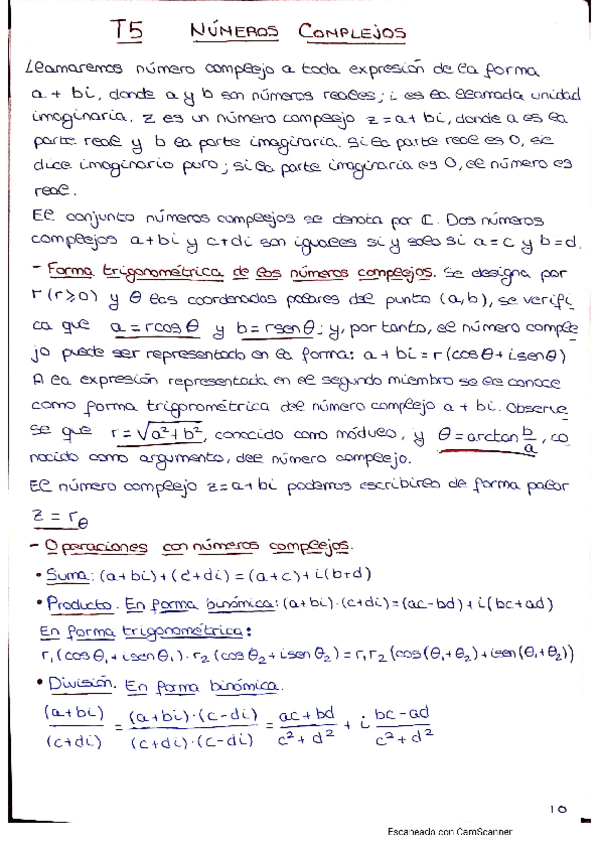 T5 NÚMEROS COMPLEJOS
Llamaremos número complejo a toda expresión de la forma
a + bi, donde a y b son números reales; i es la llamada unidad
imaginaria. z es un número complejo z = a + bi, donde a es la
parte real y b la parte imaginaria. Si la parte real es 0, se
dice imaginario puro; si la parte imaginaria es 0, el número es
real.
El conjunto números complejos se denota por ℂ. Dos números
complejos a+bi y c+di son iguales si y solo si a=c y b=d.
- Forma trigonométrica de los números complejos. Se designa por
r (r≥0) y θ las coordenadas polares del punto (a,b), se verifi
ca que a = rcosθ y b = rsenθ; y, por tanto, el número comple
jo puede ser representado en la forma: a + bi = r(cosθ + isenθ)
A la expresión representada en el segundo miembro se le conoce
como forma trigonométrica del número complejo a + bi. Observe
se que r = √a²+b², conocido como módulo, y θ = arctan b/a, co
nocido como argumento, del número complejo.
El número complejo z=a+bi podemos escribirlo de forma polar
z = rθ
- Operaciones con números complejos.
• Suma: (a+bi)+(c+di) = (a+c)+i(b+d)
• Producto. En forma binómica: (a+bi)·(c+di)=(ac-bd)+i(bc+ad)
En forma trigonométrica:
r₁(cosθ₁+isenθ₁)·r₂(cosθ₂+isenθ₂)=r₁r₂(cos(θ₁+θ₂)+isen(θ₁+θ₂))
• División. En forma binómica.
(a+bi)/(c+di) = (a+bi)·(c-di)/(c+di)·(c-di) = ac+bd/c²+d² + i bc-ad/c²+d²
10
Escaneado con CamScanner